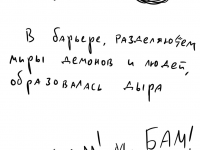 В барьере, разделяющем
миры демонов и людей,
образовалась дыра
БАМ!